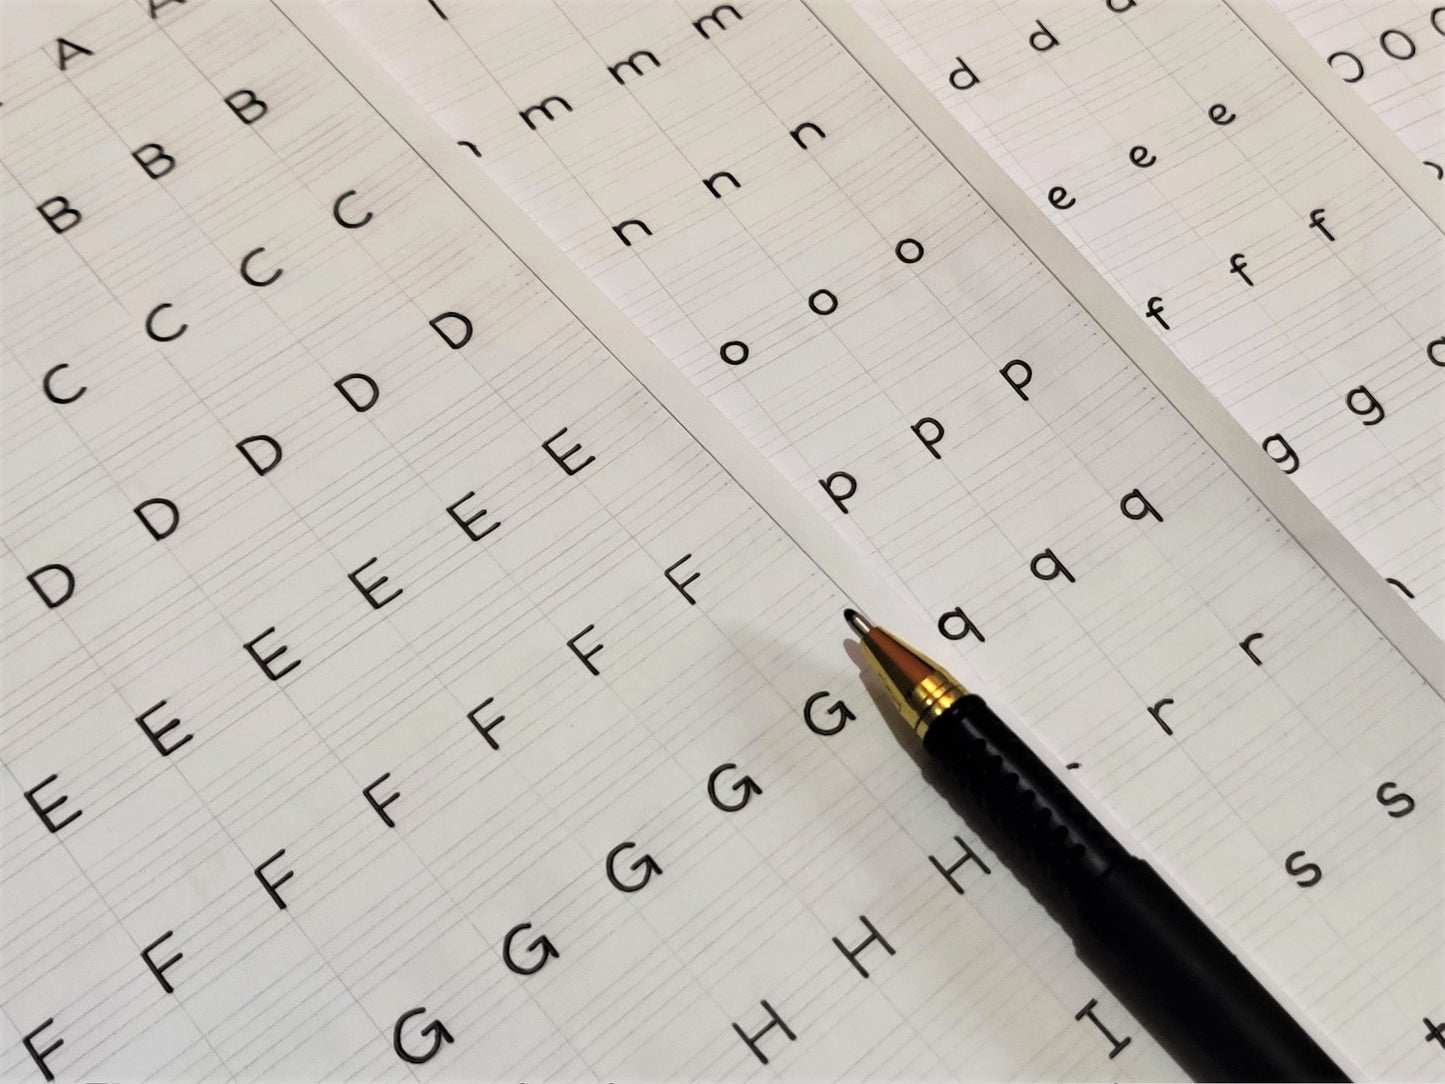 A A
B B B
C C C C
D D D D D
E E E E E E
F F F F F F F
G G G G G
H H H
I
m m m
n n n
o o o
p p p
q q q
r r
s s
t
d d d
e e e
f f f
g g